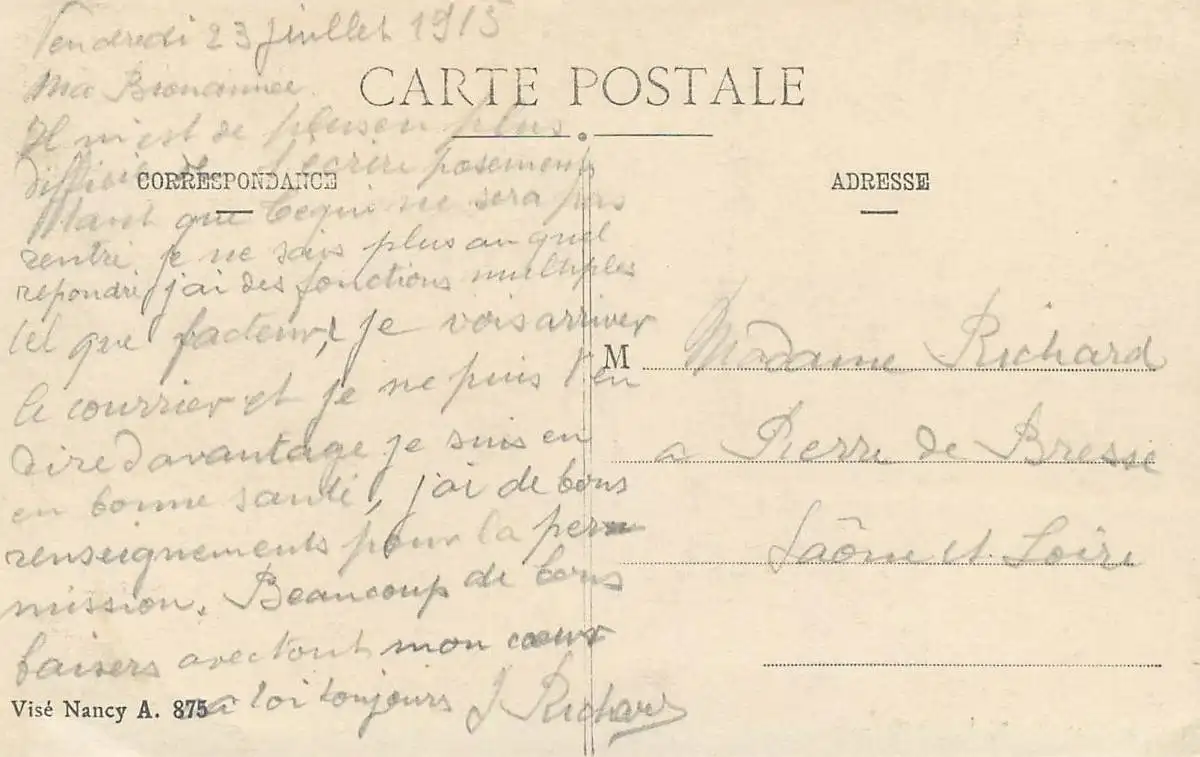 Vendredi 23 juillet 1915
Ma Bienaimée
CARTE POSTALE
Il m'est de plus en plus
difficile d'écrire posément
CORRESPONDANCE
tant que ne sera pas
rentré je ne sais plus auquel
répondre, j'ai des fonctions multiples
tel que facteur, je vois arriver
le courrier et je ne puis t'en
dire davantage je suis en
en bonne santé, j'ai de bons
renseignements pour la per
mission. Beaucoup de bons
baisers avec tout mon cœur
a toi toujours J Richard
Visé Nancy A. 875
ADRESSE
M Madame Richard
a Pierre de Bresse
Saône et Loire